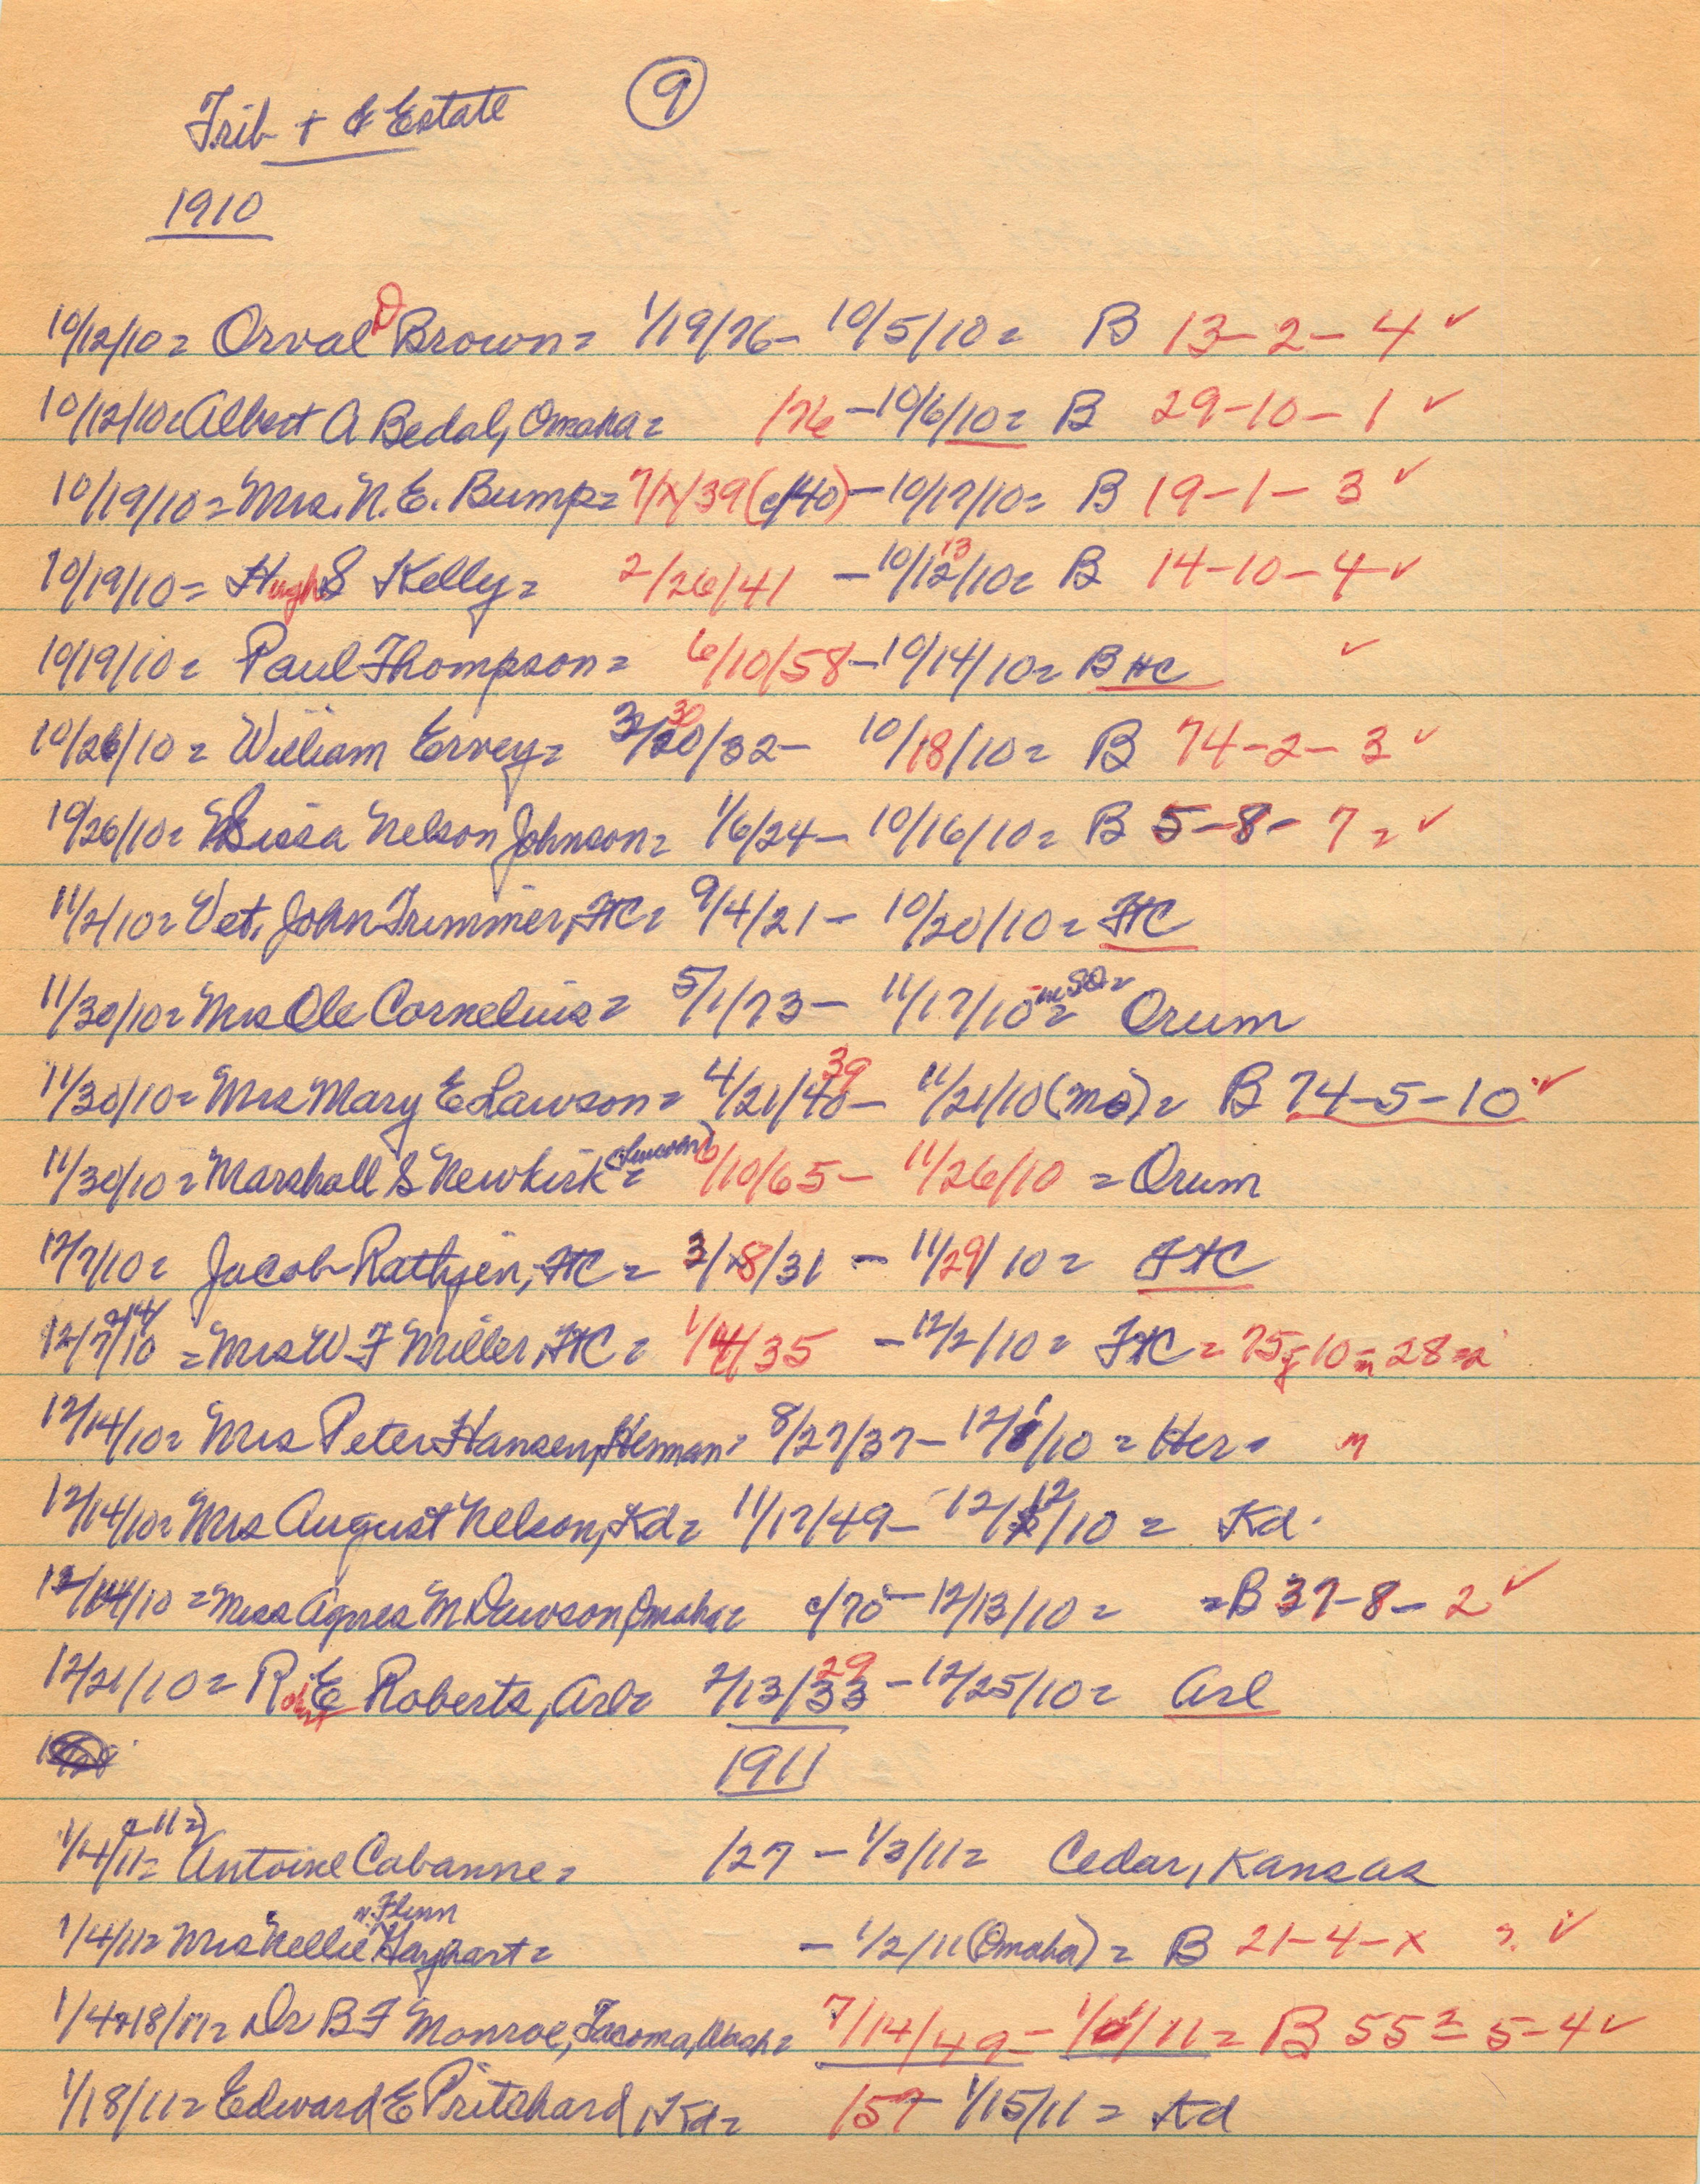 Trib + Estate 9
1910
10/12/10 = Orval D Brown = 1/19/76 - 10/5/10 = B 13-2-4 ✓
10/12/10 = Albert A Bedal, Omaha = /76 - 10/6/10 = B 29-10-1 ✓
10/19/10 = Mrs. N. E. Bump = 7/x/39 (c/40) - 10/17/10 = B 19-1-3 ✓
10/19/10 = Hugh S Kelly = 2/26/41 - 10/13/10 = B 14-10-4 ✓
10/19/10 = Paul Thompson = 6/10/58 - 10/14/10 = B HC ✓
10/26/10 = William Ervey = 3/30/32 - 10/18/10 = B 74-2-3 ✓
10/26/10 = Sissa Nelson Johnson = 1/6/24 - 10/16/10 = B 5-8-7 = ✓
11/2/10 = Vet. John Trimmer, FtC = 9/4/21 - 10/20/10 = FtC
11/30/10 = Mrs Ole Cornelius = 5/1/73 - 11/17/10 = Orum
11/30/10 = Mrs Mary E Lawson = 4/21/40 39 - 11/21/10 (Mo) = B 74-5-10 ✓
11/30/10 = Marshall S Newkirk = /10/65 - 11/26/10 = Orum
12/7/10 = Jacob Rathjen, FtC = 3/18/31 - 11/29/10 = FtC
12/7/10 = Mrs W F Miller, FtC = 1/4/35 - 12/2/10 = FtC = 75-10-28
12/14/10 = Mrs Peter Hansen, Herman = 8/27/37 - 12/1/10 = Her =
12/14/10 = Mrs August Nelson, Kd = 11/17/49 - 12/12/10 = Kd.
12/14/10 = Miss Agnes M Dawson, Omaha = c/70 - 12/13/10 = = B 37-8-2 ✓
12/21/10 = Robert E Roberts, Arl = 2/13/33 29 - 12/25/10 = Arl
1911
1/4/11 = Antoine Cabanne = /27 - 1/3/11 = Cedar, Kansas
1/4/11 = Mrs Nellie Hayhart = - 1/2/11 (Omaha) = B 21-4-x ? ✓
1/4+18/11 = Dr B F Monroe, Tacoma, Wash = 7/14/49 - 1/1/11 = B 55 = 5-4 ✓
1/18/11 = Edward E Pritchard, Kd = /57 - 1/15/11 = Kd